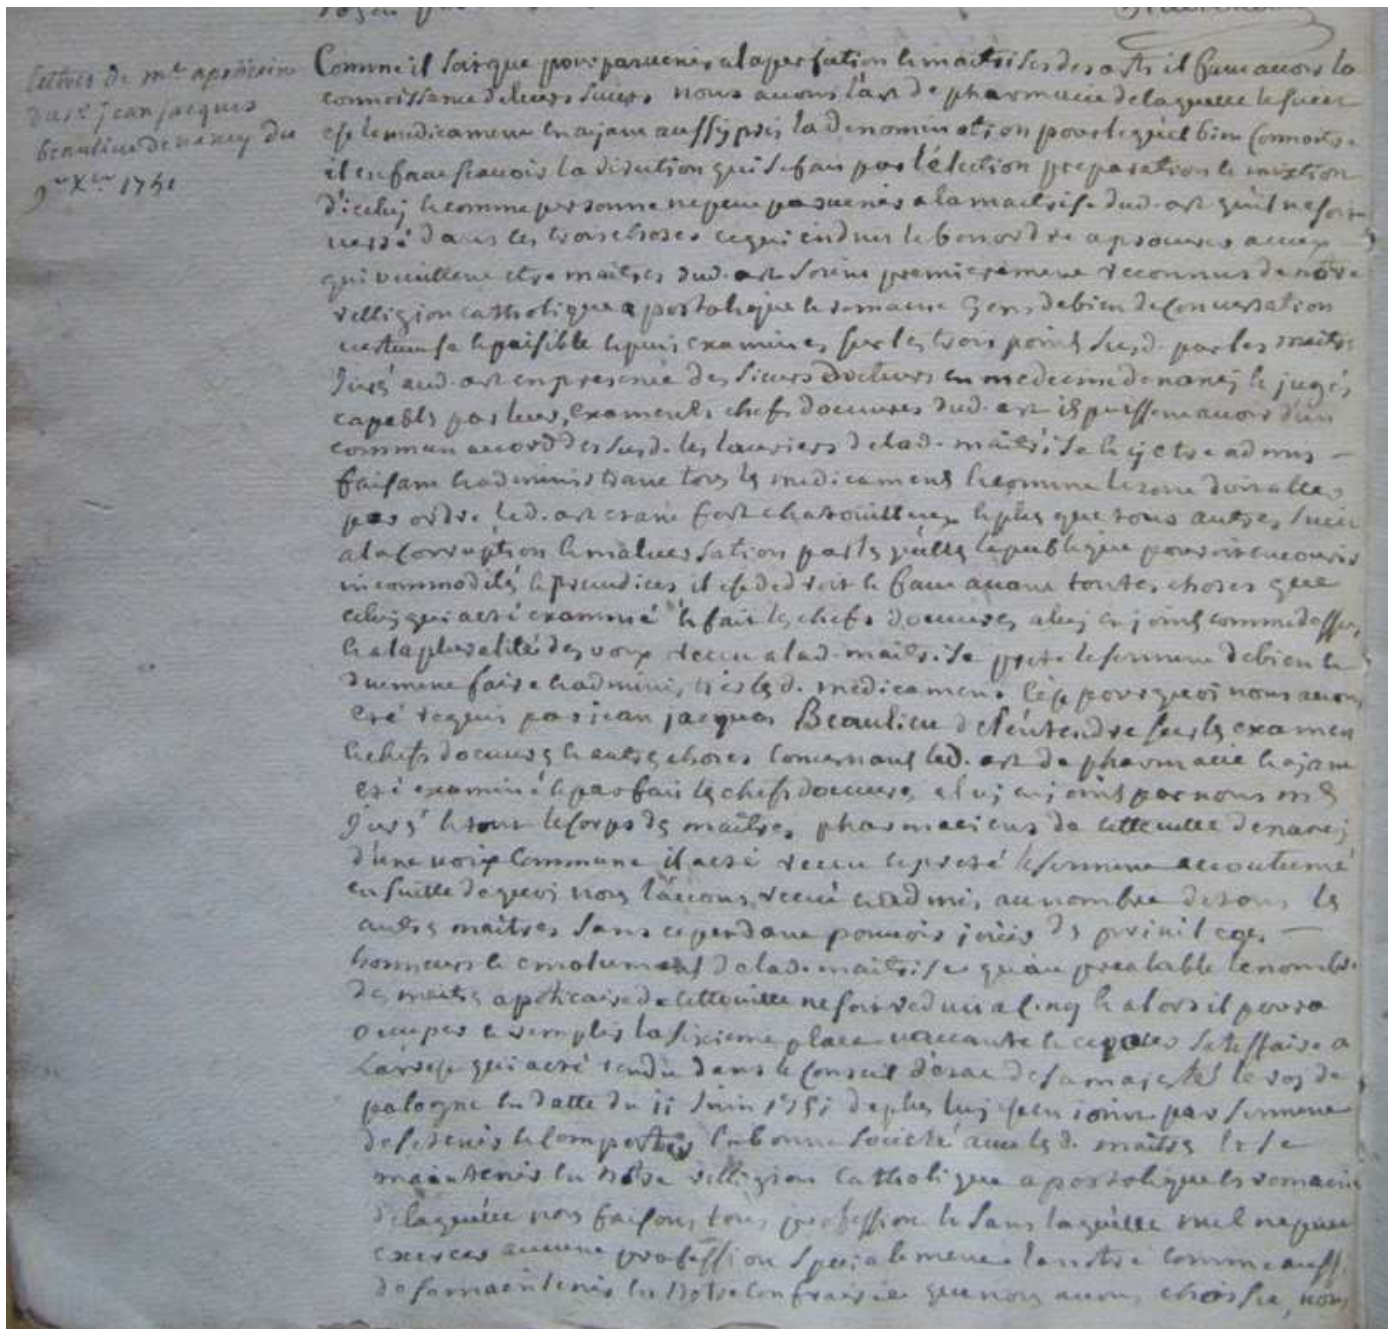 lettres de mtre apoticaire
du sr. jean jacques
beaulieu de nancy du
9e Xbre 1751
Comme il soit que pour parvenir a la perfection et maitrises des arts il faut avoir la
connoissance de leurs suiets nous avons l'art de pharmacie de laquelle le suiet
est le medicament en ajant aussy pris la denomination pour lequel bien connoitre
il en faut scavoir la division qui se fait par l'élection preparation et mixtion
d'iceluj et comme personne ne peut parvenir a la maitrise dud. art qu'il ne soit
versé dans les trois choses ce qui induit le bon ordre a procurer a ceux
qui veuillent etre maitres dud. art soient premierement reconnus de nôtre
relligion catholique apostolique et romaine gens de bien de conversation
vertueuse et paisible et puis examinés sur les trois points susd. par les maitres
Jurés aud. art en presence des sieurs docteurs en medecine de nancj et jugés
capables par leurs examens et chefs d'oeuvres dud. art ils puissent avoir d'un
commun accord des susd. les lauriers de lad. maitrise et y etre admis
faisant et administrant tous les medicaments et comme le tout doit aller
par ordre led. art etant fort chatouilleux et plus que tous autres suiet
a la corruption et malversation par lesquelles le publique pouroit encourir
incommodités et preiudices il est de droit et faut avant toutes choses que
celuy qui a eté examiné et fait les chefs d'oeuvres a luj enjoints comme dessus
et a la pluralité des voix receu a lad. maitrise prete le serment de bien et
duement faire et administrer lesd. medicament. c'est pourquoi nous avons
eté requis par jean jacques Beaulieu de l'entendre sur les examen
et chefs d'oeuvres et autres choses concernant led. art de pharmacie et ajant
eté examiné et parfait les chefs d'oeuvres a luj enjoint par nous mes
Jurés et tout le corps des maitres pharmaciens de cette ville de nancj
d'une voix commune il a eté receu et preté le serment accoutumé
en suitte de quoi nous l'avons receu et admis au nombre de tous les
autres maitres sans cependant pouvoir jouir des privileges
honneurs et emoluments de lad. maitrise qu'au prealable le nombre
des maitres apoticaires de cette ville ne soit reduit a cinq et alors il poura
occuper et remplir la sixieme place vaccante et ce pour satisfaire a
l'arrest qui a eté rendu dans le conseil d'etat de sa majesté le roj de
pologne en datte du 11 Juin 1751 de plus luj est enjoint par serment
de se tenir et comporter en bonne societé avec lesd. maitres et se
maintenir en nôtre relligion catholique apostolique et romaine
de laquelle nous faisons tous profession et sans laquelle nul ne peut
exercer aucune profession specialement la notre comme aussj
de se maintenir en notre confrairie que nous avons choisie, nous